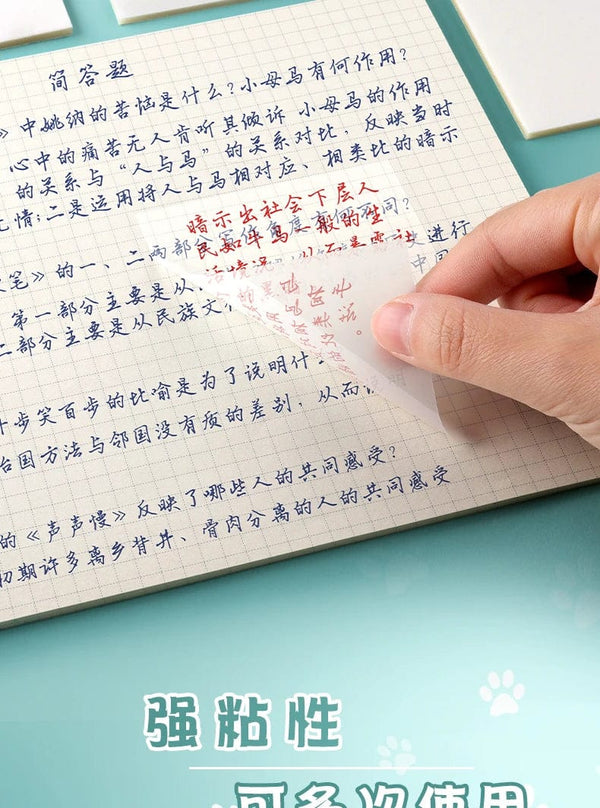 简答题
》中姚纳的苦恼是什么?小母马有何作用?
心中的痛苦无人肯听其倾诉 小母马的作用
的关系与“人与马”的关系对比,反映当时
无情;二是运用将人与马相对应、相类比的暗示
暗示出社会下层人
民如牛马一般的生
笔》的一、二两部
同?
进行
第一部分主要是从
二部分主要是从民族文
十步笑百步的比喻是为了说明什
治国方法与邻国没有质的差别,从而
的《声声慢》反映了哪些人的共同感受?
初期许多离乡背井、骨肉分离的人的共同感受
强粘性
可多次使用